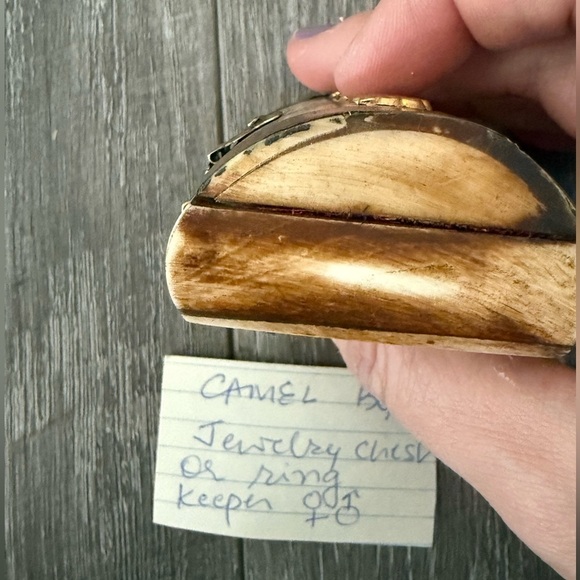 CAMEL
Jewelry chest
or ring
Keeper ♀♂